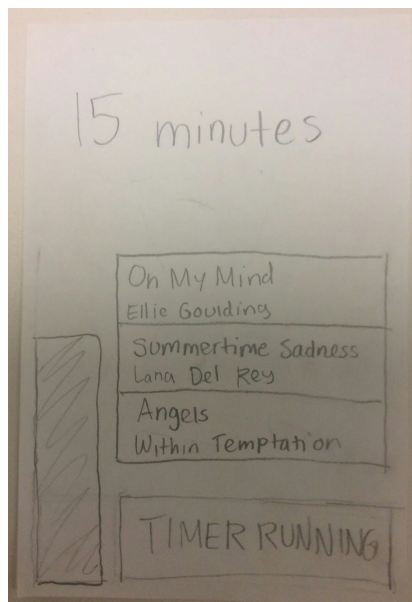 15 minutes
On My Mind
Ellie Goulding
Summertime Sadness
Lana Del Rey
Angels
Within Temptation
TIMER RUNNING